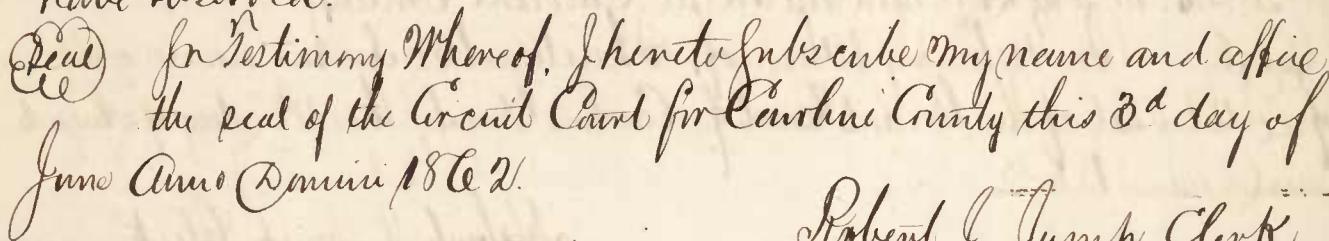 have reserved.
(Seal) In Testimony Whereof, I hereto Subscribe my name and affix
the seal of the Circuit Court for Caroline County this 3d day of
June Anno Domini 1862.
Robert J Jump Clerk